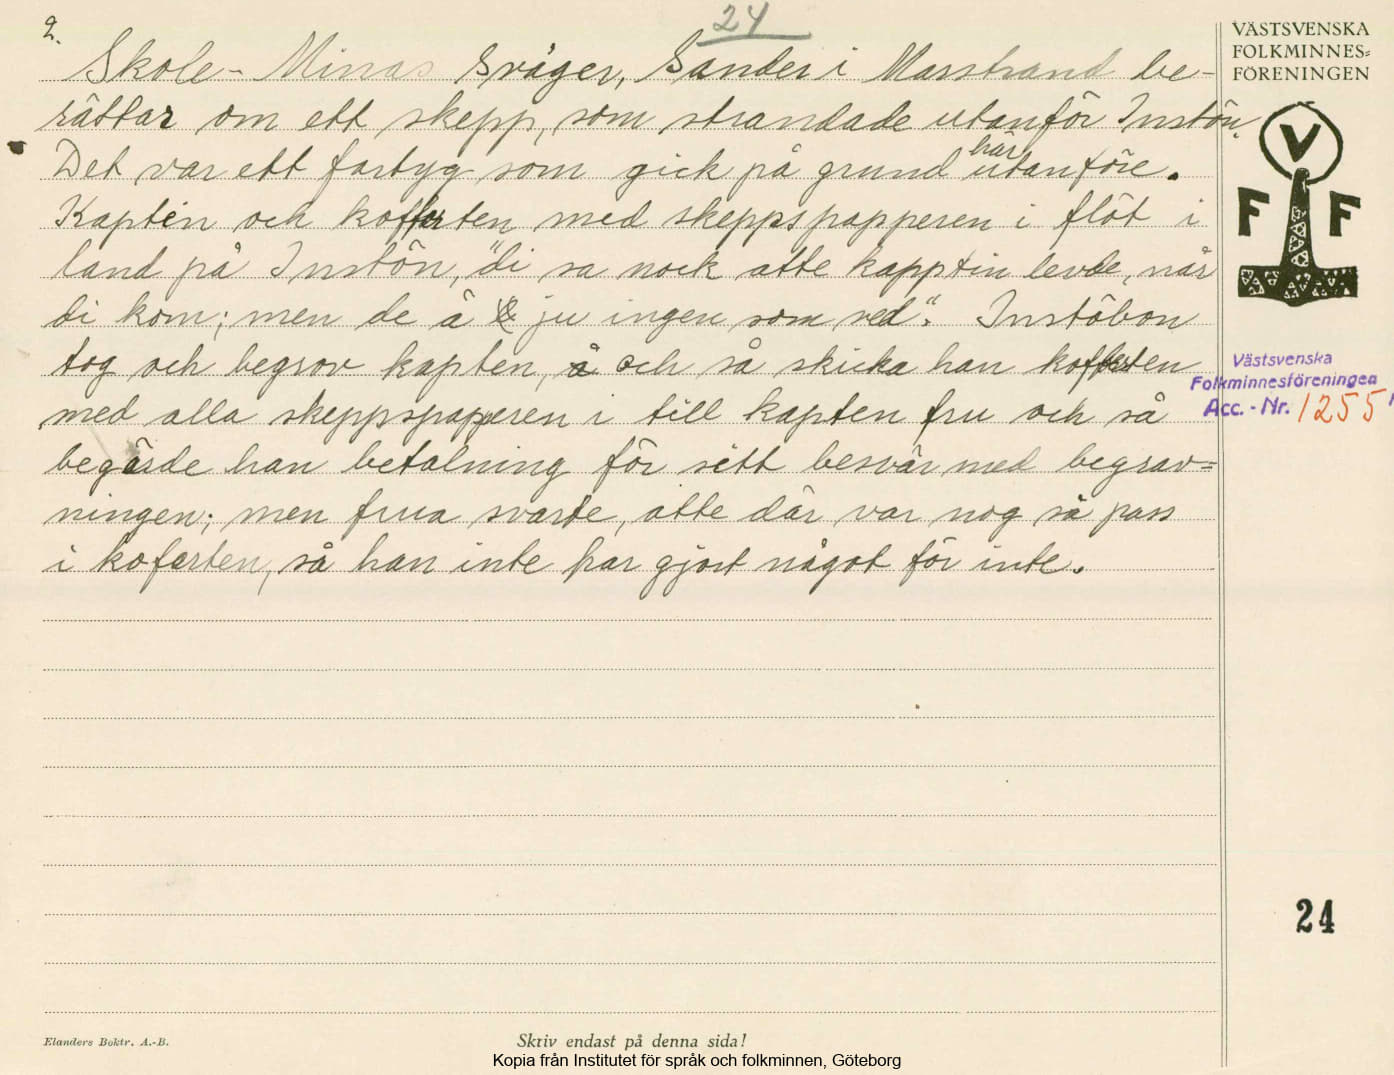 2.
24
Skole-Minas Svåger, Sander i Marstrand be-
rättar om ett skepp, som strandade utanför Instön.
Det var ett fartyg som gick på grund här utanföre.
Kaptin och kofferten med skeppspapperen i flöt i
land på Instön, "di sa nock atte kapptin levde, när
di kom; men de ä ju ingen som ved". Instöbon
tog och begrov kapten, å och så skicka han kofferten
med alla skeppspapperen i till kapten fru och så
begärde han betalning för sitt besvär med begrav=
ningen; men frua svarte, atte där var nog så pass
i koferten, så han inte har gjort något för inte.
VÄSTSVENSKA
FOLKMINNES=
FÖRENINGEN
V
F F
Västsvenska
Folkminnesföreningen
Acc. - Nr. 1255
24
Elanders Boktr. A.-B.
Skriv endast på denna sida!
Kopia från Institutet för språk och folkminnen, Göteborg